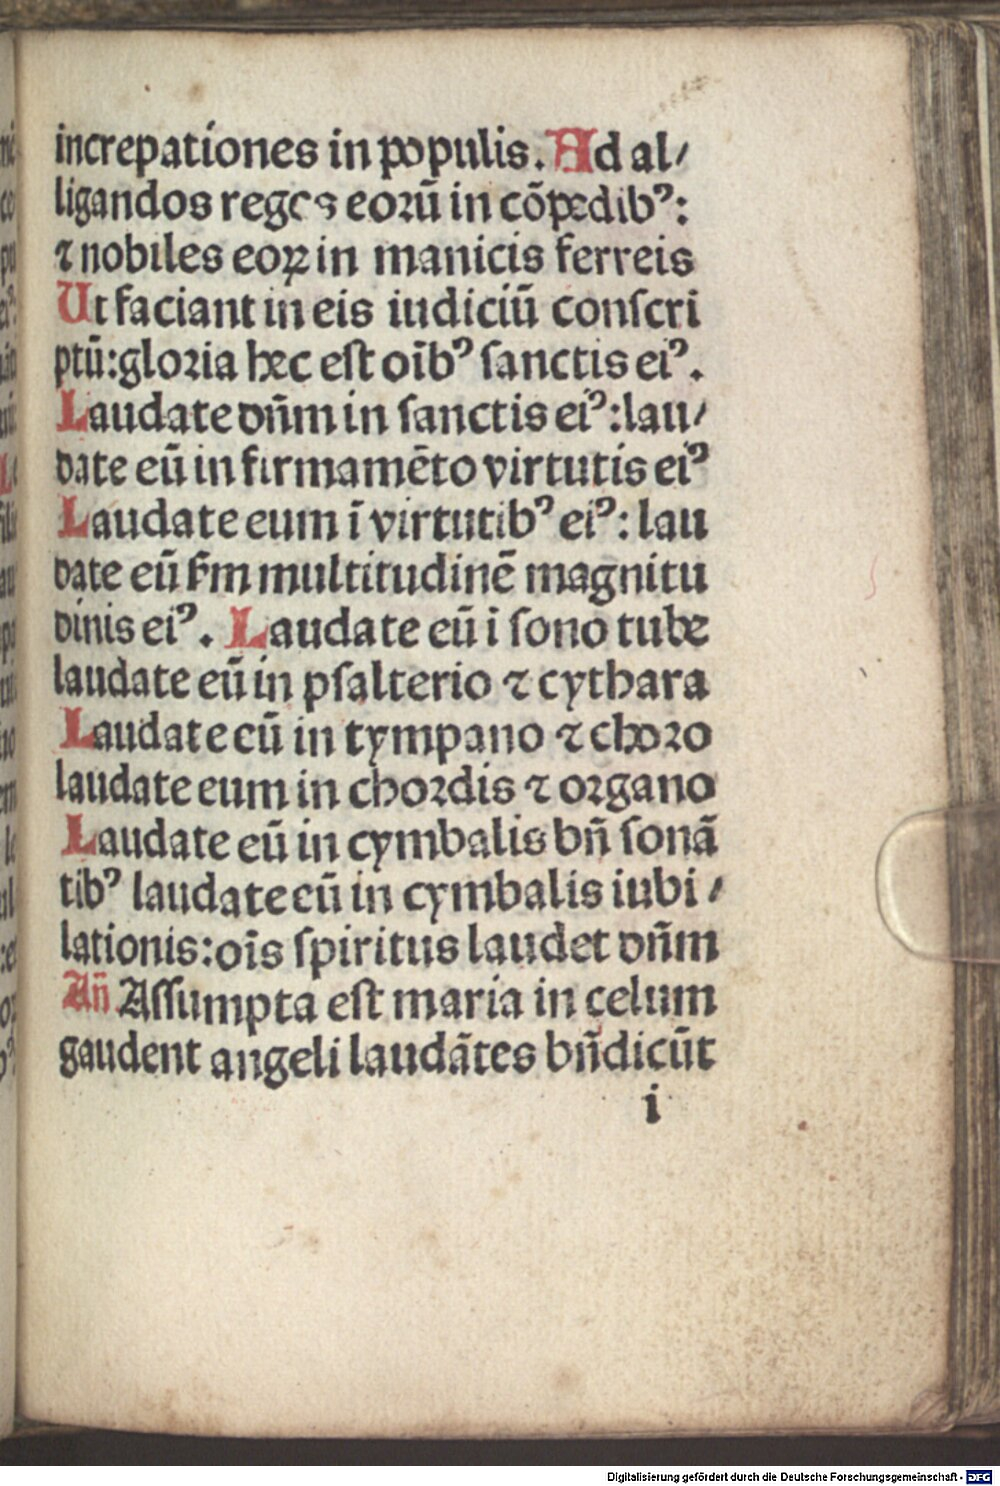 increpationes in populis. Ad al⸗
ligandos reges eoꝛū in cõpedibꝰ:
⁊ nobiles eoꝝ in manicis ferreis
Ut faciant in eis iudiciū conſcri
ptū: gloꝛia hec eſt oībꝰ ſanctis eiꝰ.
Laudate dñm in ſanctis eiꝰ: lau⸗
date eū in firmamēto virtutis eiꝰ
Laudate eum ī virtutibꝰ eiꝰ: lau
date eū ẜm multitudinē magnitu
dinis eiꝰ. Laudate eū ī ſono tube
laudate eū in pſalterio ⁊ cythara
Laudate eū in tympano ⁊ choꝛo
laudate eum in choꝛdis ⁊ oꝛgano
Laudate eū in cymbalis bñ ſonã
tibꝰ laudate eū in cymbalis iubi⸗
lationis: oīs ſpiritus laudet dñm
Añ Aſſumpta eſt maria in celum
gaudent angeli laudãtes bñdicūt
i
Digitalisierung gefördert durch die Deutsche Forschungsgemeinschaft - DFG